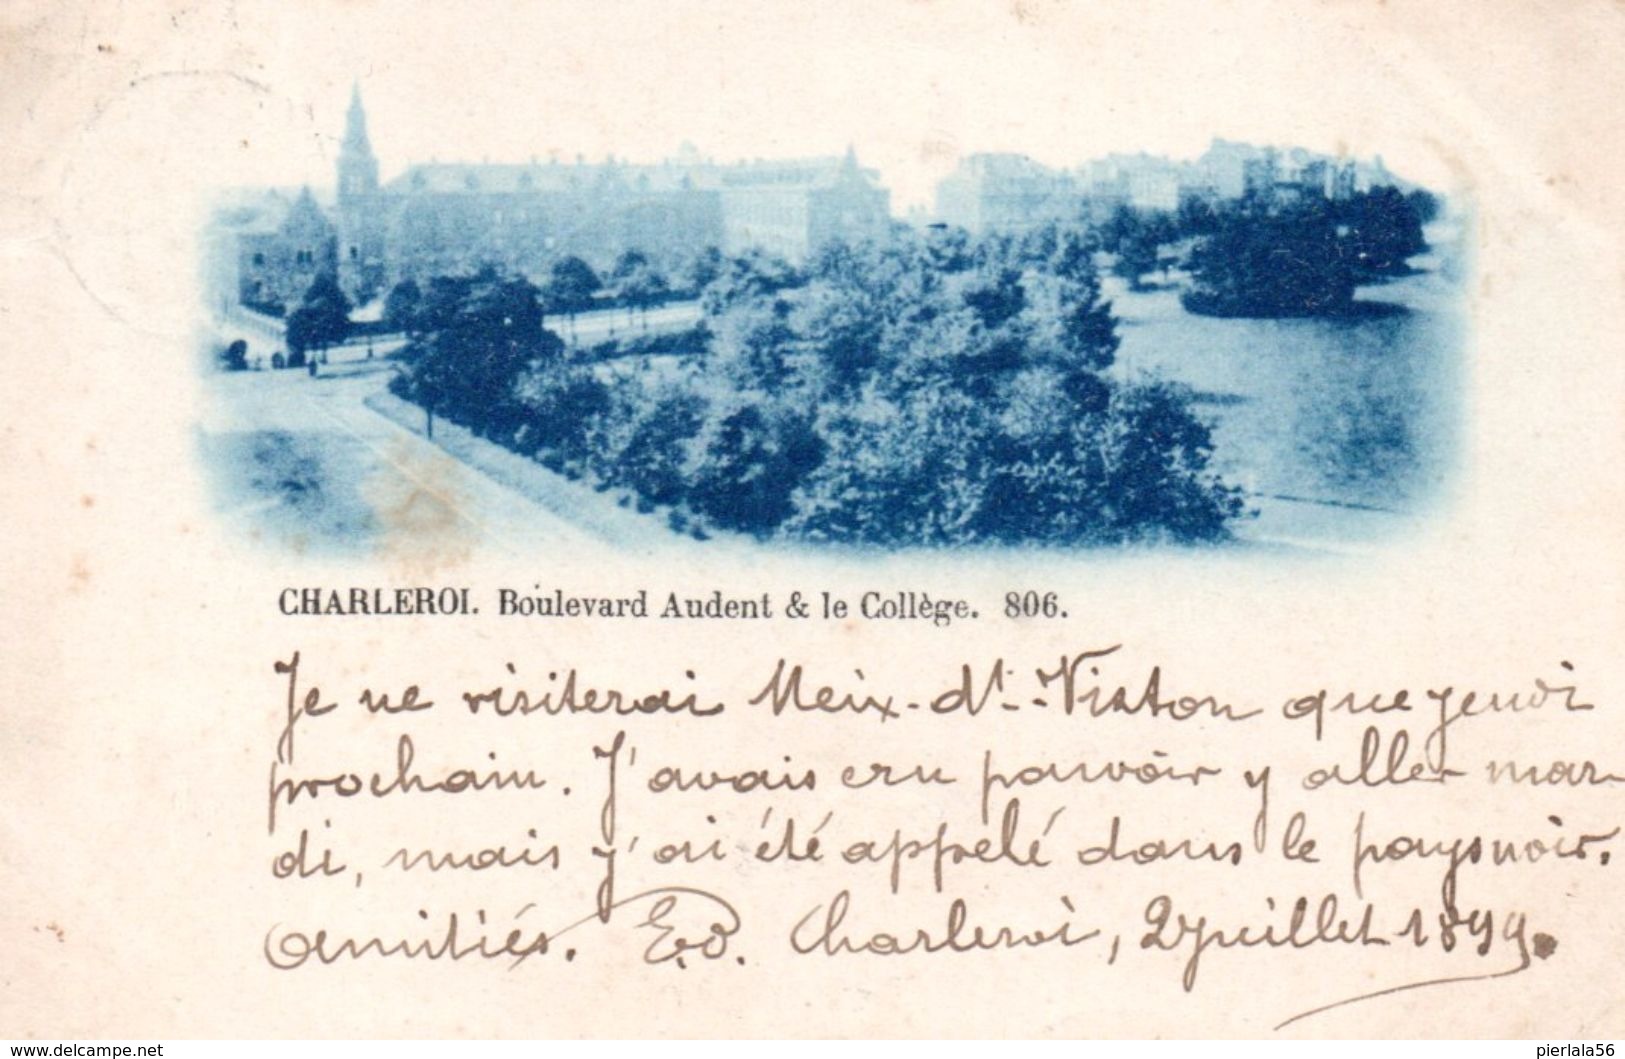 CHARLEROI. Boulevard Audent & le Collège. 806.
Je ne visiterai Meix-dt-Virton que jeudi
prochain. J'avais cru pouvoir y aller mar-
di, mais j'ai été appelé dans le pays noir.
Amitiés. Ed. Charleroi, 2 juillet 1899.
www.delcampe.net
pierlala56